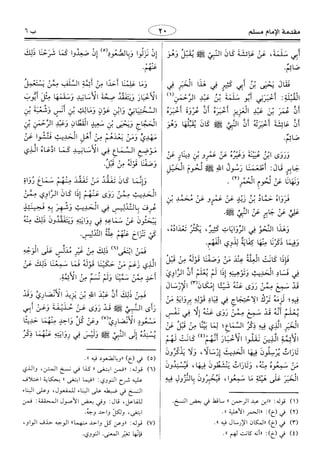 مقدمة الإمام مسلم
٢٠
ب ٦
أبي سَلَمَةَ، عَنْ عَائِشَةَ كَانَ النَّبِيُّ ﷺ يُقَبِّلُ وَهُوَ
صَائِمٌ.
فَقَالَ يَحْيَى بْنُ أَبِي كَثِيرٍ فِي هَذَا الْخَبَرِ فِي
الْقُبْلَةِ: أَخْبَرَنِي أَبُو سَلَمَةَ بْنُ عَبْدِ الرَّحْمَنِ(١)
أَنَّ عُمَرَ بْنَ عَبْدِ الْعَزِيزِ أَخْبَرَهُ أَنَّ عُرْوَةَ أَخْبَرَهُ
أَنَّ عَائِشَةَ أَخْبَرَتْهُ أَنَّ النَّبِيَّ ﷺ كَانَ يُقَبِّلُهَا وَهُوَ
صَائِمٌ.
وَرَوَى ابْنُ عُيَيْنَةَ وَغَيْرُهُ عَنْ عَمْرِو بْنِ دِينَارٍ عَنْ
جَابِرٍ قَالَ: أَطْعَمَنَا رَسُولُ اللهِ ﷺ لُحُومَ الْخَيْلِ
وَنَهَانَا عَنْ لُحُومِ الْحُمُرِ(٢).
فَرَوَاهُ حَمَّادُ بْنُ زَيْدٍ عَنْ عَمْرٍو عَنْ مُحَمَّدِ بْنِ
عَلِيٍّ عَنْ جَابِرٍ عَنِ النَّبِيِّ ﷺ.
وَهَذَا النَّحْوُ فِي الرِّوَايَاتِ كَثِيرٌ، يَكْثُرُ تَعْدَادُهُ،
وَفِيمَا ذَكَرْنَا مِنْهَا كِفَايَةٌ لِذَوِي الْفَهْمِ.
فَإِذَا كَانَتِ الْعِلَّةُ عِنْدَ مَنْ وَصَفْنَا قَوْلَهُ مِنْ قَبْلُ
فِي فَسَادِ الْحَدِيثِ وَتَوْهِينِهِ إِذَا لَمْ يُعْلَمْ أَنَّ الرَّاوِيَ
قَدْ سَمِعَ مِمَّنْ رَوَى عَنْهُ شَيْئًا إِمْكَانَ(٣) الْإِرْسَالِ
فِيهِ، لَزِمَهُ تَرْكُ الِاحْتِجَاجِ فِي قِيَادِ قَوْلِهِ بِرِوَايَةِ مَنْ
يُعْلَمُ أَنَّهُ قَدْ سَمِعَ مِمَّنْ رَوَى عَنْهُ إِلَّا فِي نَفْسِ
الْخَبَرِ الَّذِي فِيهِ ذِكْرُ السَّمَاعِ؛ لِمَا بَيَّنَّا مِنْ قَبْلُ عَنِ
الْأَئِمَّةِ الَّذِينَ نَقَلُوا الْأَخْبَارَ أَنَّهُمْ(٤) كَانَتْ لَهُمْ
تَارَاتٌ يُرْسِلُونَ فِيهَا الْحَدِيثَ إِرْسَالًا، وَلَا يَذْكُرُونَ
مَنْ سَمِعُوهُ مِنْهُ، وَتَارَاتٌ يَنْشَطُونَ فِيهَا، فَيُسْنِدُونَ
الْخَبَرَ عَلَى هَيْئَةِ مَا سَمِعُوا، فَيُخْبِرُونَ بِالنُّزُولِ فِيهِ
(١) قوله: «ابن عبد الرحمن» ساقط في بعض النسخ.
(٢) في (خ): «الحمر الأهلية».
(٣) في (خ): «لمكان الإرسال فيه».
(٤) في (خ): «أنه كانت لهم».
إِنْ نَزَلُوا وَبِالصُّعُودِ(٥) إِنْ صَعِدُوا كَمَا شَرَحْنَا ذَلِكَ
عَنْهُمْ.
وَمَا عَلِمْنَا أَحَدًا مِنْ أَئِمَّةِ السَّلَفِ مِمَّنْ يَسْتَعْمِلُ
الْأَخْبَارَ وَيَتَفَقَّدُ صِحَّةَ الْأَسَانِيدِ وَسَقَمَهَا مِثْلَ أَيُّوبَ
السَّخْتِيَانِيِّ وَابْنِ عَوْنٍ وَمَالِكِ بْنِ أَنَسٍ وَشُعْبَةَ بْنِ
الْحَجَّاجِ وَيَحْيَى بْنِ سَعِيدٍ الْقَطَّانِ وَعَبْدِ الرَّحْمَنِ بْنِ
مَهْدِيٍّ وَمَنْ بَعْدَهُمْ مِنْ أَهْلِ الْحَدِيثِ فَتَّشُوا عَنْ
مَوْضِعِ السَّمَاعِ فِي الْأَسَانِيدِ كَمَا ادَّعَاهُ الَّذِي
وَصَفْنَا قَوْلَهُ مِنْ قَبْلُ.
وَإِنَّمَا كَانَ تَفَقُّدُ مَنْ تَفَقَّدَ مِنْهُمْ سَمَاعَ رُوَاةِ
الْحَدِيثِ مِمَّنْ رَوَى عَنْهُمْ إِذَا كَانَ الرَّاوِي مِمَّنْ
عُرِفَ بِالتَّدْلِيسِ فِي الْحَدِيثِ وَشُهِرَ بِهِ فَحِينَئِذٍ
يَبْحَثُونَ عَنْ سَمَاعِهِ فِي رِوَايَتِهِ وَيَتَفَقَّدُونَ ذَلِكَ مِنْهُ
كَيْ تَنْزَاحَ عَنْهُمْ عِلَّةُ التَّدْلِيسِ.
فَمَنِ ابْتَغَى(٦) ذَلِكَ مِنْ غَيْرِ مُدَلِّسٍ عَلَى الْوَجْهِ
الَّذِي زَعَمَ مَنْ حَكَيْنَا قَوْلَهُ فَمَا سَمِعْنَا ذَلِكَ عَنْ
أَحَدٍ مِمَّنْ سَمَّيْنَا وَلَمْ نُسَمِّ مِنَ الْأَئِمَّةِ.
فَمِنْ ذَلِكَ أَنَّ عَبْدَ اللهِ بْنَ يَزِيدَ الْأَنْصَارِيَّ وَقَدْ
رَأَى النَّبِيَّ ﷺ قَدْ رَوَى عَنْ حُذَيْفَةَ وَعَنْ أَبِي
مَسْعُودٍ الْأَنْصَارِيِّ(٧) وَعَنْ كُلِّ وَاحِدٍ مِنْهُمَا حَدِيثًا
يُسْنِدُهُ إِلَى النَّبِيِّ ﷺ وَلَيْسَ فِي رِوَايَتِهِ عَنْهُمَا ذِكْرُ
(٥) في (خ) «وبالصعود فيه».
(٦) قوله: «فمن ابتغى» كذا في نسخ المتن، والذي
عليه شرح النووي: «فيما ابتغى» بحكاية اختلاف
النسخ في ضبطه على البناء للمفعول، وعلى البناء
للفاعل، قال: وفي بعض الأصول المحققة: فمن
ابتغى، ولكل واحد وجهٌ.
(٧) قوله: «وعن كل واحد منهما» الوجه حذف الواو،
فإنها تغيّر المعنى. النووي.